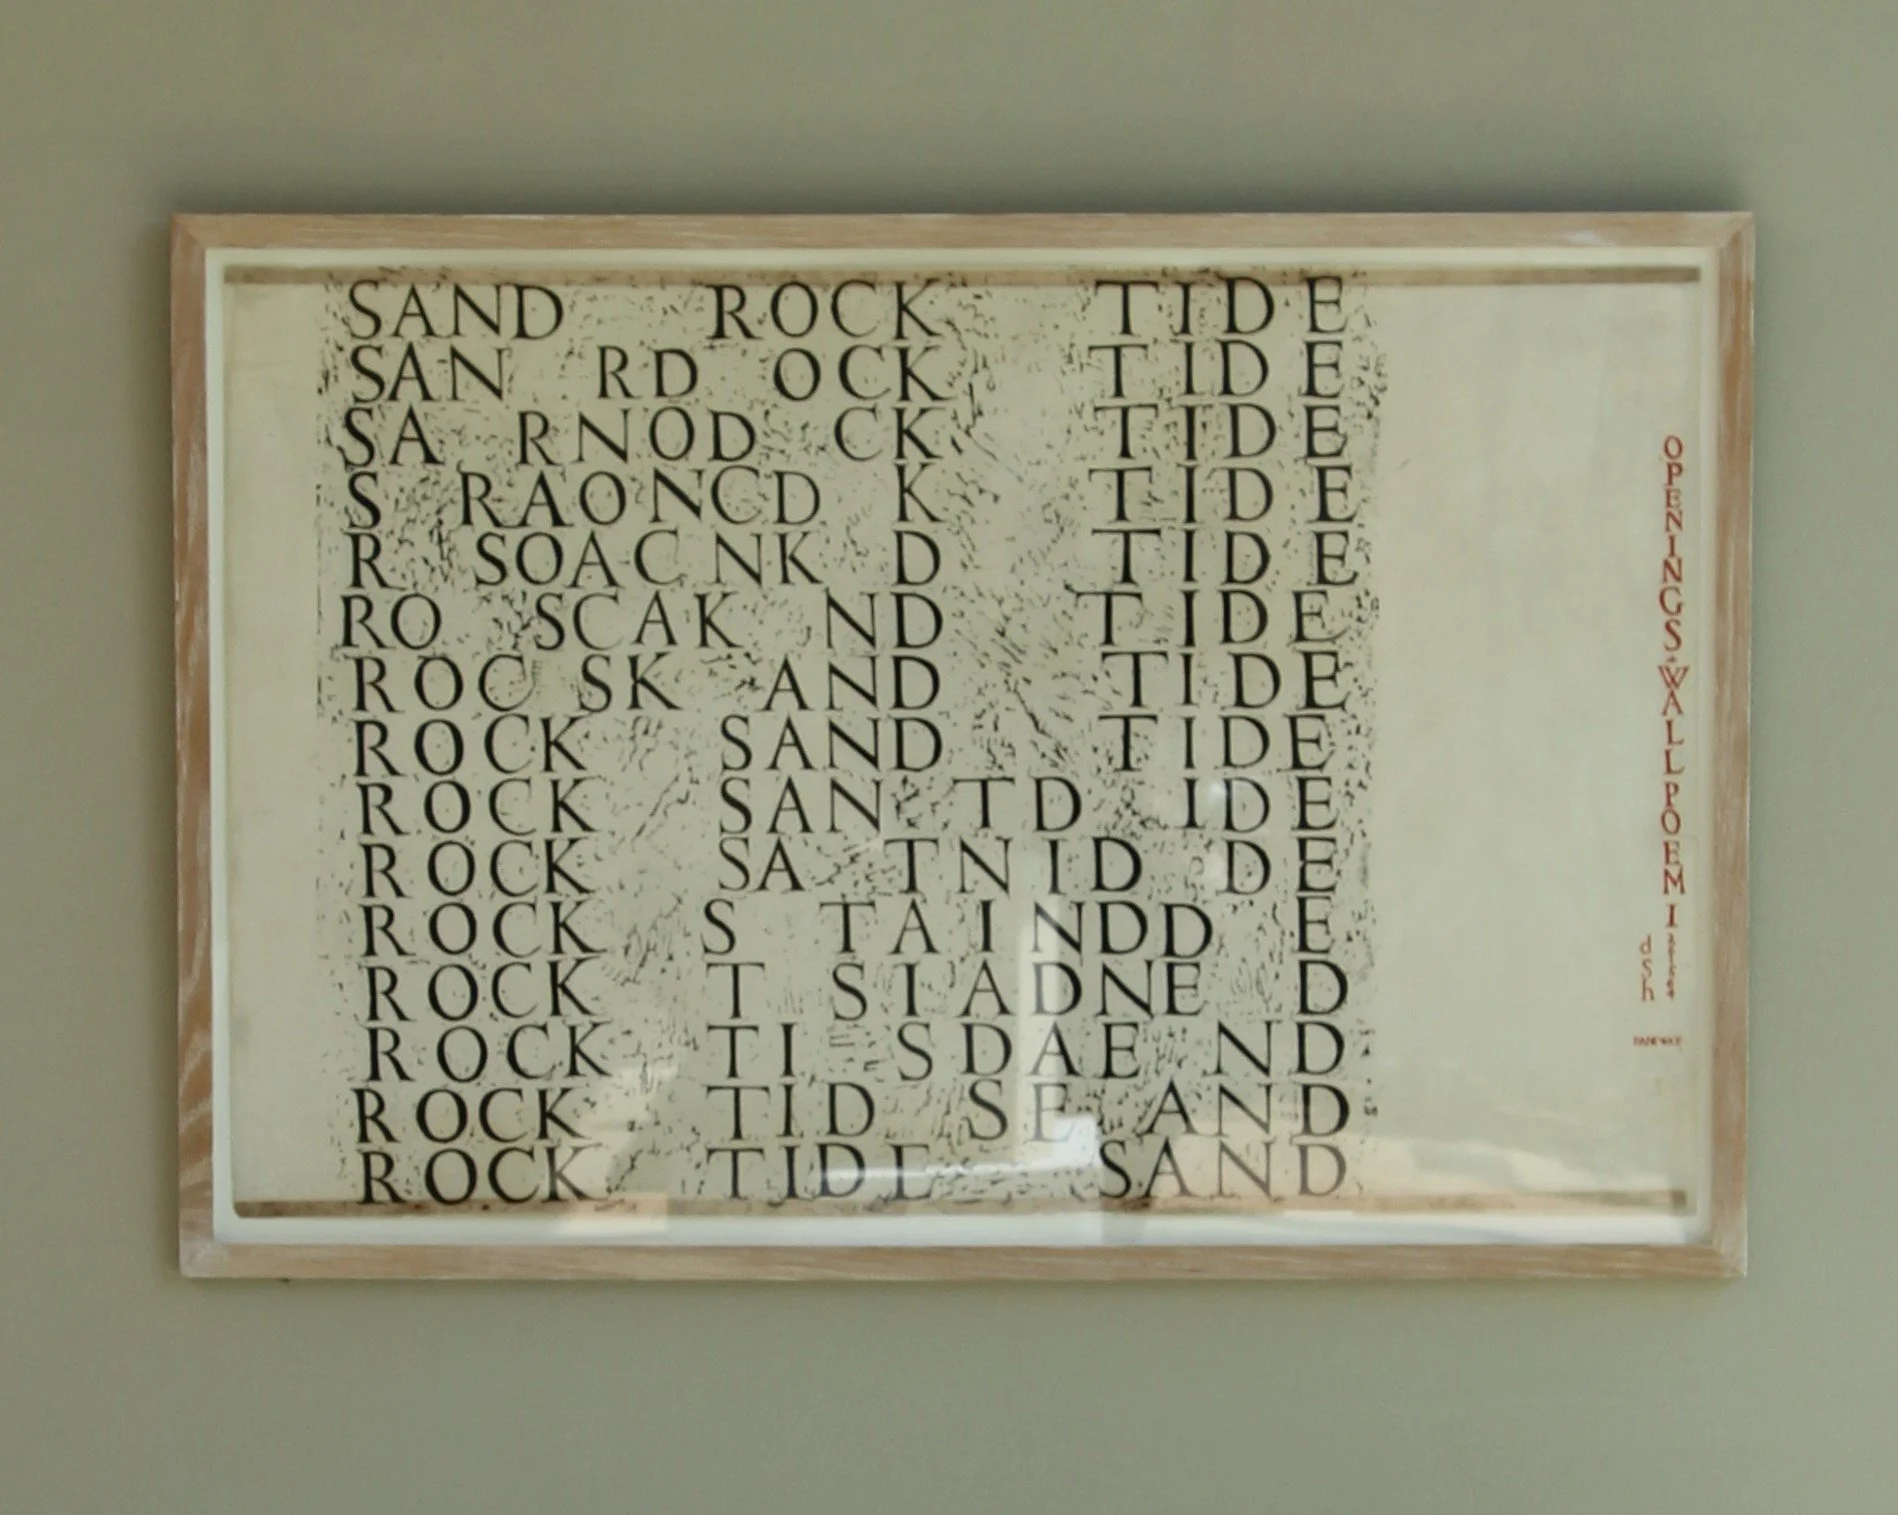 SAND ROCK TIDE
SAN RD OCK TIDE
SA RNOD CK TIDE
S RAONCD K TIDE
R SOACNK D TIDE
RO SCAK ND TIDE
ROC SK AND TIDE
ROCK SAND TIDE
ROCK SAN TD IDE
ROCK SA TNID DE
ROCK S TAINDD E
ROCK T SIADNE D
ROCK TI SDAE ND
ROCK TID SE AND
ROCK TIDE SAND
OPENINGS WALLPOEM I
dsh